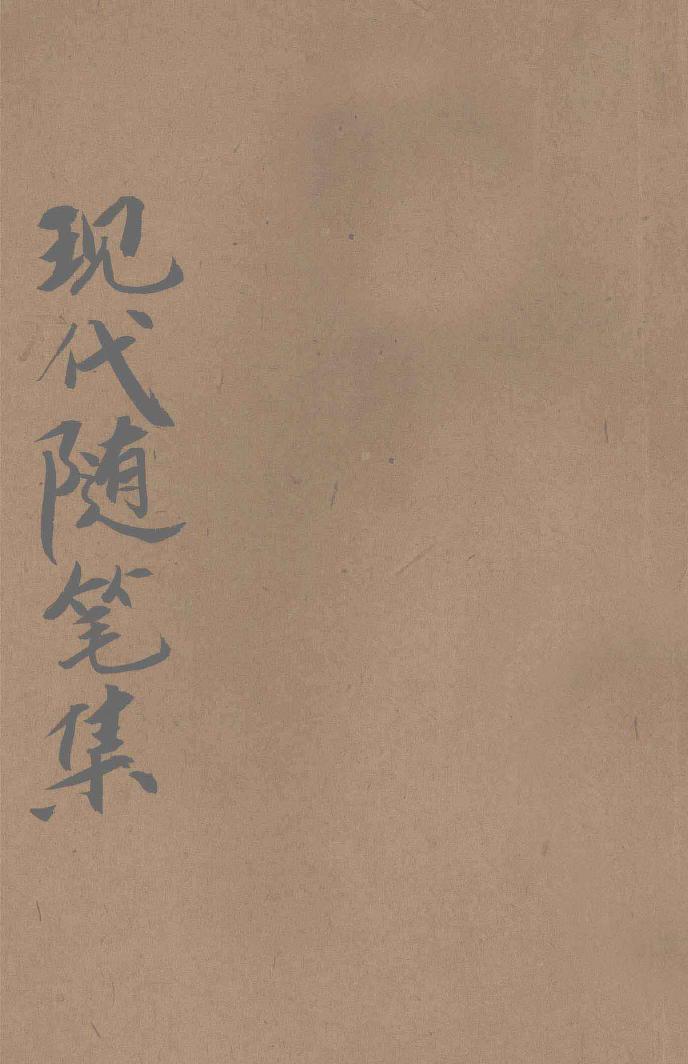 现代随笔集